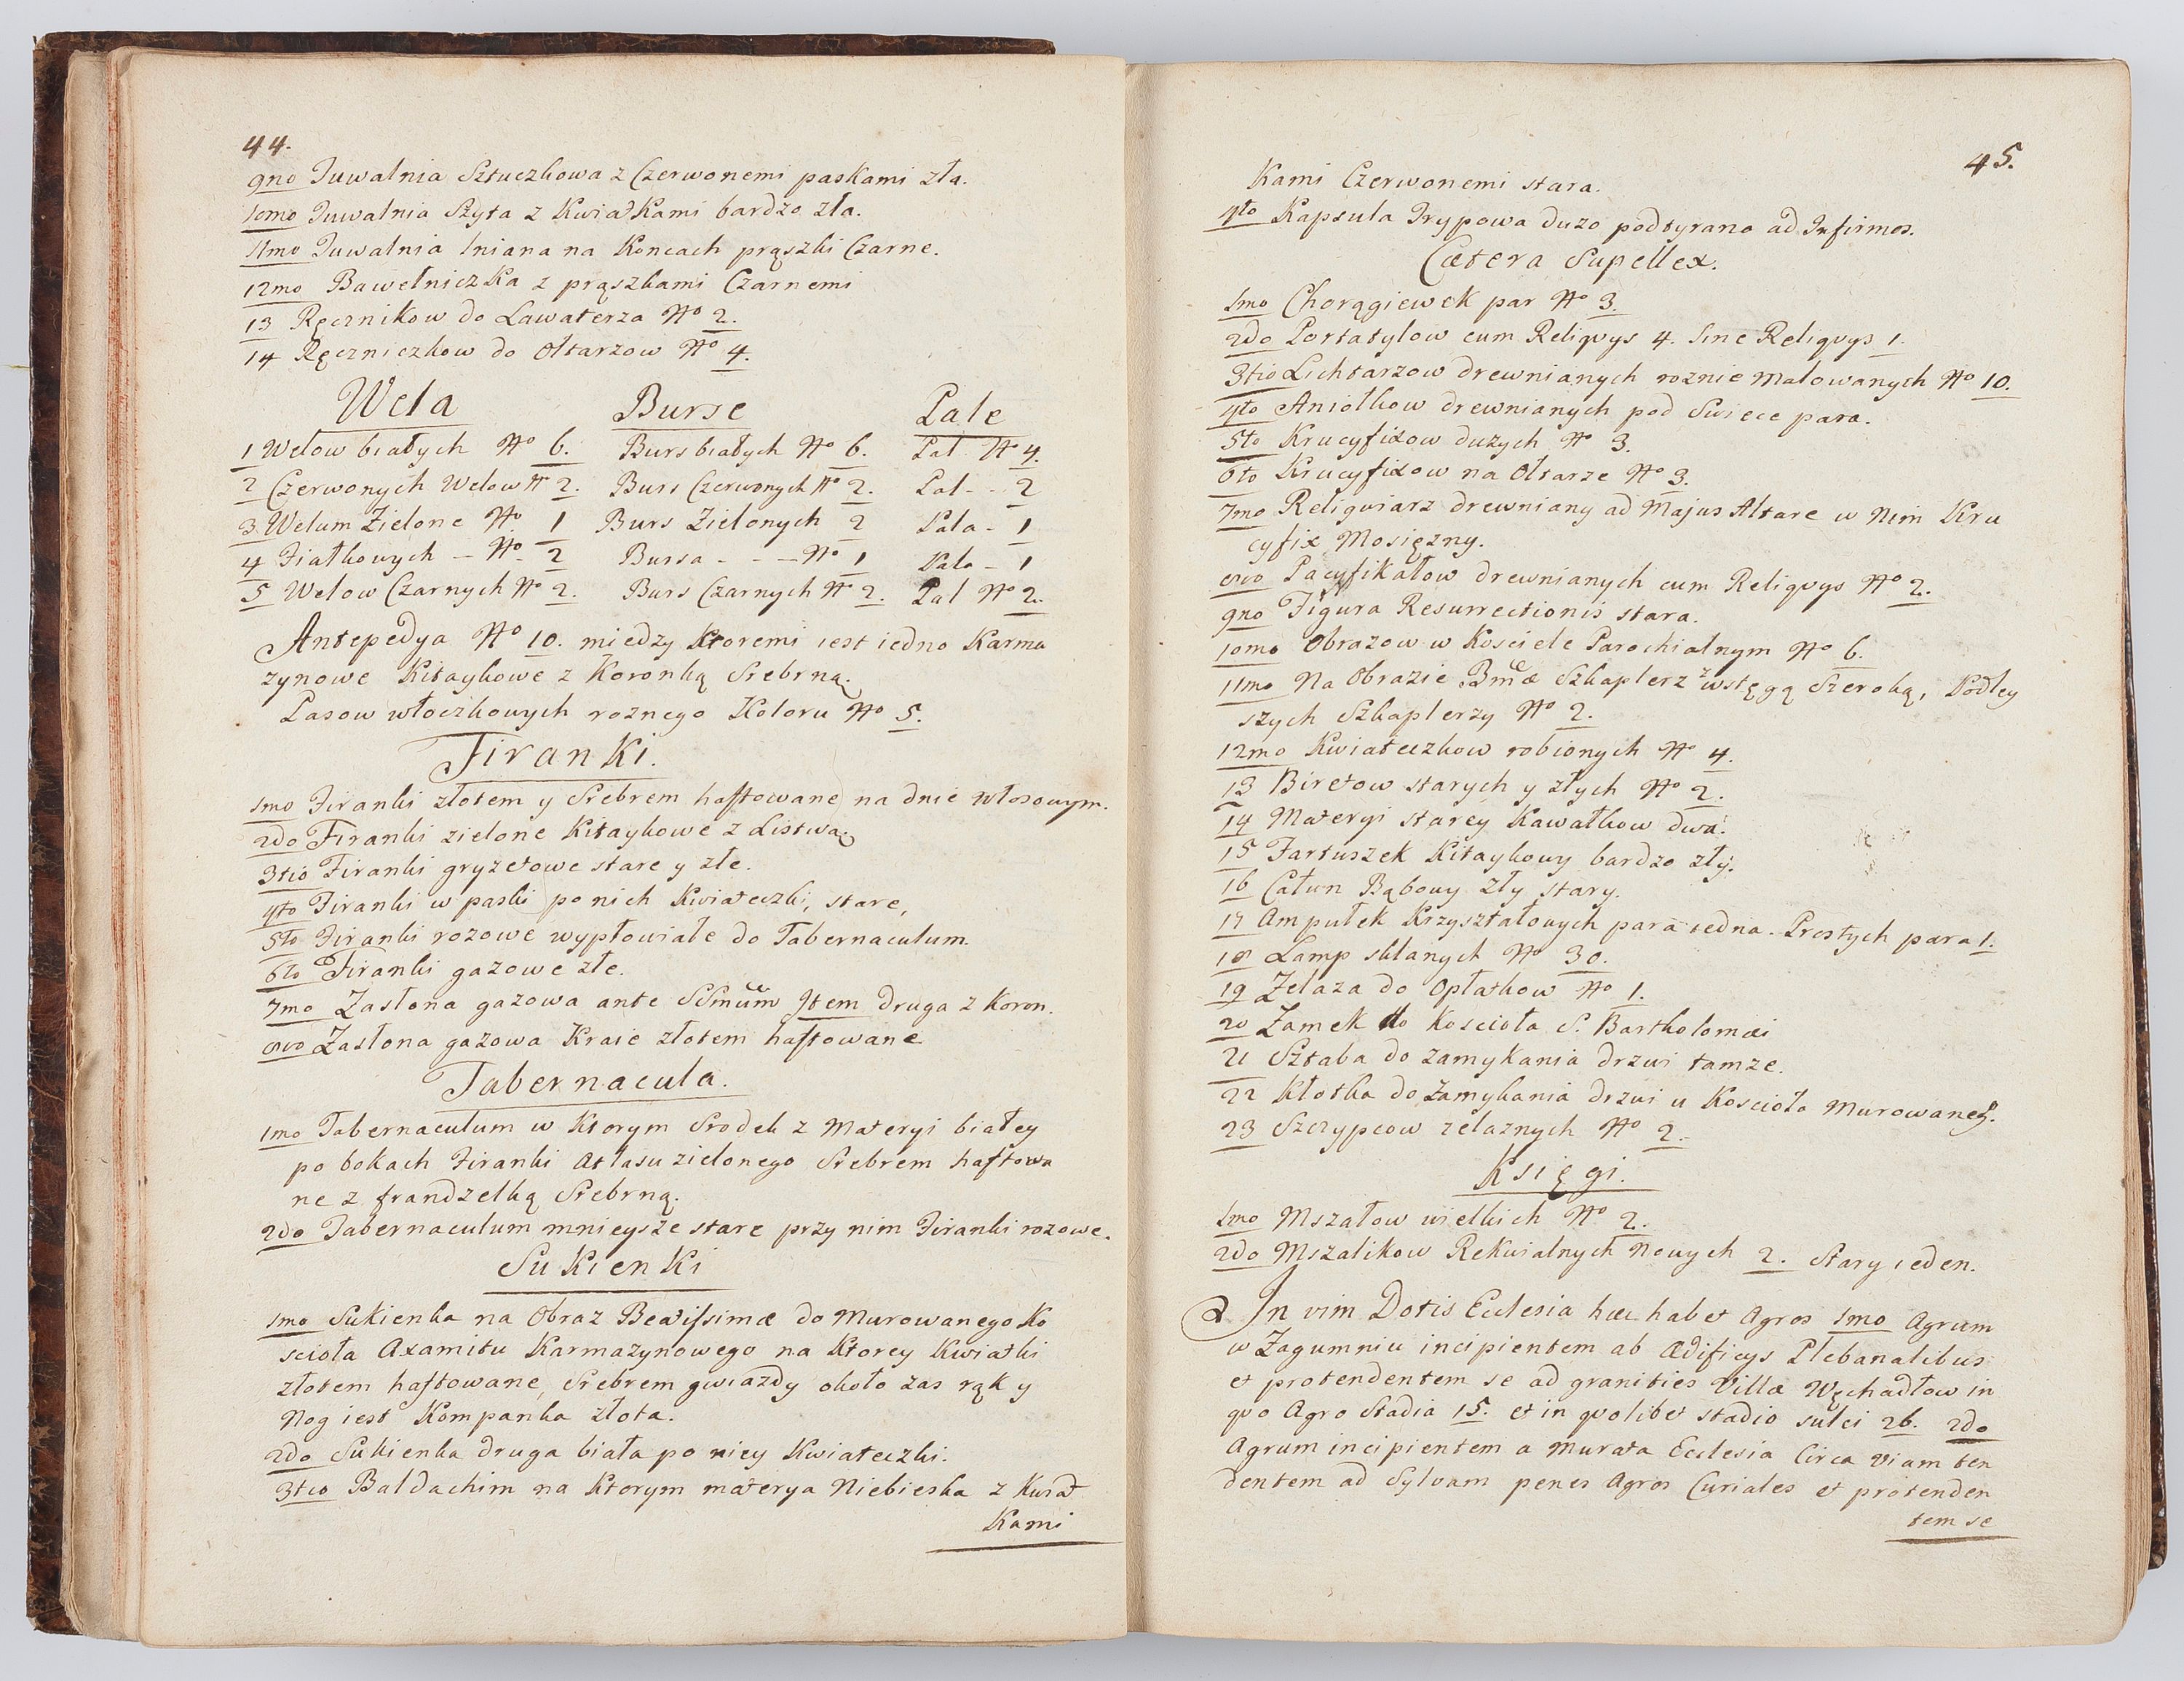 44.
9no Tuwalnia Sztuczkowa z Czerwonemi paskami zła.
10mo Tuwalnia Szyta z Kwiatkami bardzo zła.
11mo Tuwalnia lniana na Koncach prąszki Czarne.
12mo Bawełniczka z prąszkami Czarnemi
13 Ręcznikow do Lawaterza No 2.
14 Ręczniczkow do Ołtarzow No 4.
Wela Burse Pale
1 Welow białych No 6. Burs białych No 6. Pal No 4.
2 Czerwonych Welow No 2. Burs Czerwonych No 2. Pal - - 2
3 Welum Zielone No 1 Burs Zielonych 2 Pala - 1
4 Fiałkowych - No 2 Bursa - - - No 1 Pala - 1
5 Welow Czarnych No 2. Burs Czarnych No 2. Pal No 2.
Antepedya No 10. miedzy Ktoremi iest iedno Karma
zynowe Kitaykowe z Koronką Srebrną.
Pasow włoczkowych roznego Koloru No 5.
Firanki.
1mo Firanki złotem y Srebrem haftowane na dnie włosowym.
2do Firanki zielone Kitaykowe z Listwą.
3tio Firanki gryzetowe stare y złe.
4to Firanki w paski po nich Kwiateczki, stare,
5to Firanki rozowe wypłowiałe do Tabernaculum.
6to Firanki gazowe złe.
7mo Zasłona gazowa ante SSmum Item druga z Koron.
8vo Zasłona gazowa Kraie złotem haftowane
Tabernacula.
1mo Tabernaculum w Ktorym Srodek z Materyi białey
po bokach Firanki Atlasu zielonego Srebrem haftowa
ne z frandzelką Srebrną.
2do Tabernaculum mnieysze stare przy nim Firanki rozowe.
Sukienki
1mo Sukienka na Obraz Beatissimæ do Murowanego Ko
scioła Axamitu Karmazynowego na Ktorey Kwiatki
złotem haftowane, Srebrem gwiazdy około zas rąk y
Nog iest Kompanka złota.
2do Sukienka druga biała po niey Kwiateczki.
3tio Baldachim na Ktorym materya Niebieska z Kwiat
Kami
45.
Kami Czerwonemi stara.
4to Kapsula Trypowa duzo podtyrana ad Infirmos.
Cætera Supellex.
1mo Chorągiewek par No 3.
2do Portatylow cum Reliqvys 4. Sine Reliqvys 1.
3tio Lichtarzow drewnianych roznie malowanych No 10.
4to Aniołkow drewnianych pod Swiece para.
5to Krucyfixow duzych No 3.
6to Krucyfixow na Ołtarze No 3.
7mo Reliqwiarz drewniany ad Majus Altare w Nim Kru
cyfix Mosiężny.
8vo Pacyfikałow drewnianych cum Reliqvys No 2.
9no Figura Resurrectionis stara.
10mo Obrazow w Kosciele Parochialnym No 6.
11mo Na Obrazie Bmæ Szkaplerz z wstęgą Szeroką, Podley
szych Szkaplerzy No 2.
12mo Kwiateczkow robionych No 4.
13 Biretow starych y złych No 2.
14 Materyi starey Kawałkow dwa.
15 Fartuszek Kitaykowy bardzo zły.
16 Całun Bąbowy zły stary.
17 Ampułek Krzyształowych para iedna. Prostych para 1.
18 Lamp sklanych No 30.
19 Zelaza do Opłatkow No 1.
20 Zamek do Koscioła S. Bartholomæi
21 Sztaba do zamykania drzwi tamze.
22 Kłotka do Zamykania drzwi u Koscioła Murowaneg.
23 Szczypcow zelaznych No 2.
Księgi.
1mo Mszałow wielkich No 2.
2do Mszalikow Rekwialnych Nowych 2. Stary ieden.
In vim Dotis Ecclesia hæc habet Agros 1mo Agrum
w Zagumniu incipientem ab Ædificys Plebanalibus
et protendentem se ad granities Villæ Węchadłow in
qvo Agro Stadia 15. et in qvolibet stadio sulci 26. 2do
Agrum incipientem a Murata Ecclesia Circa Viam ten
dentem ad Sylvam penes Agros Curiales et protenden
tem se